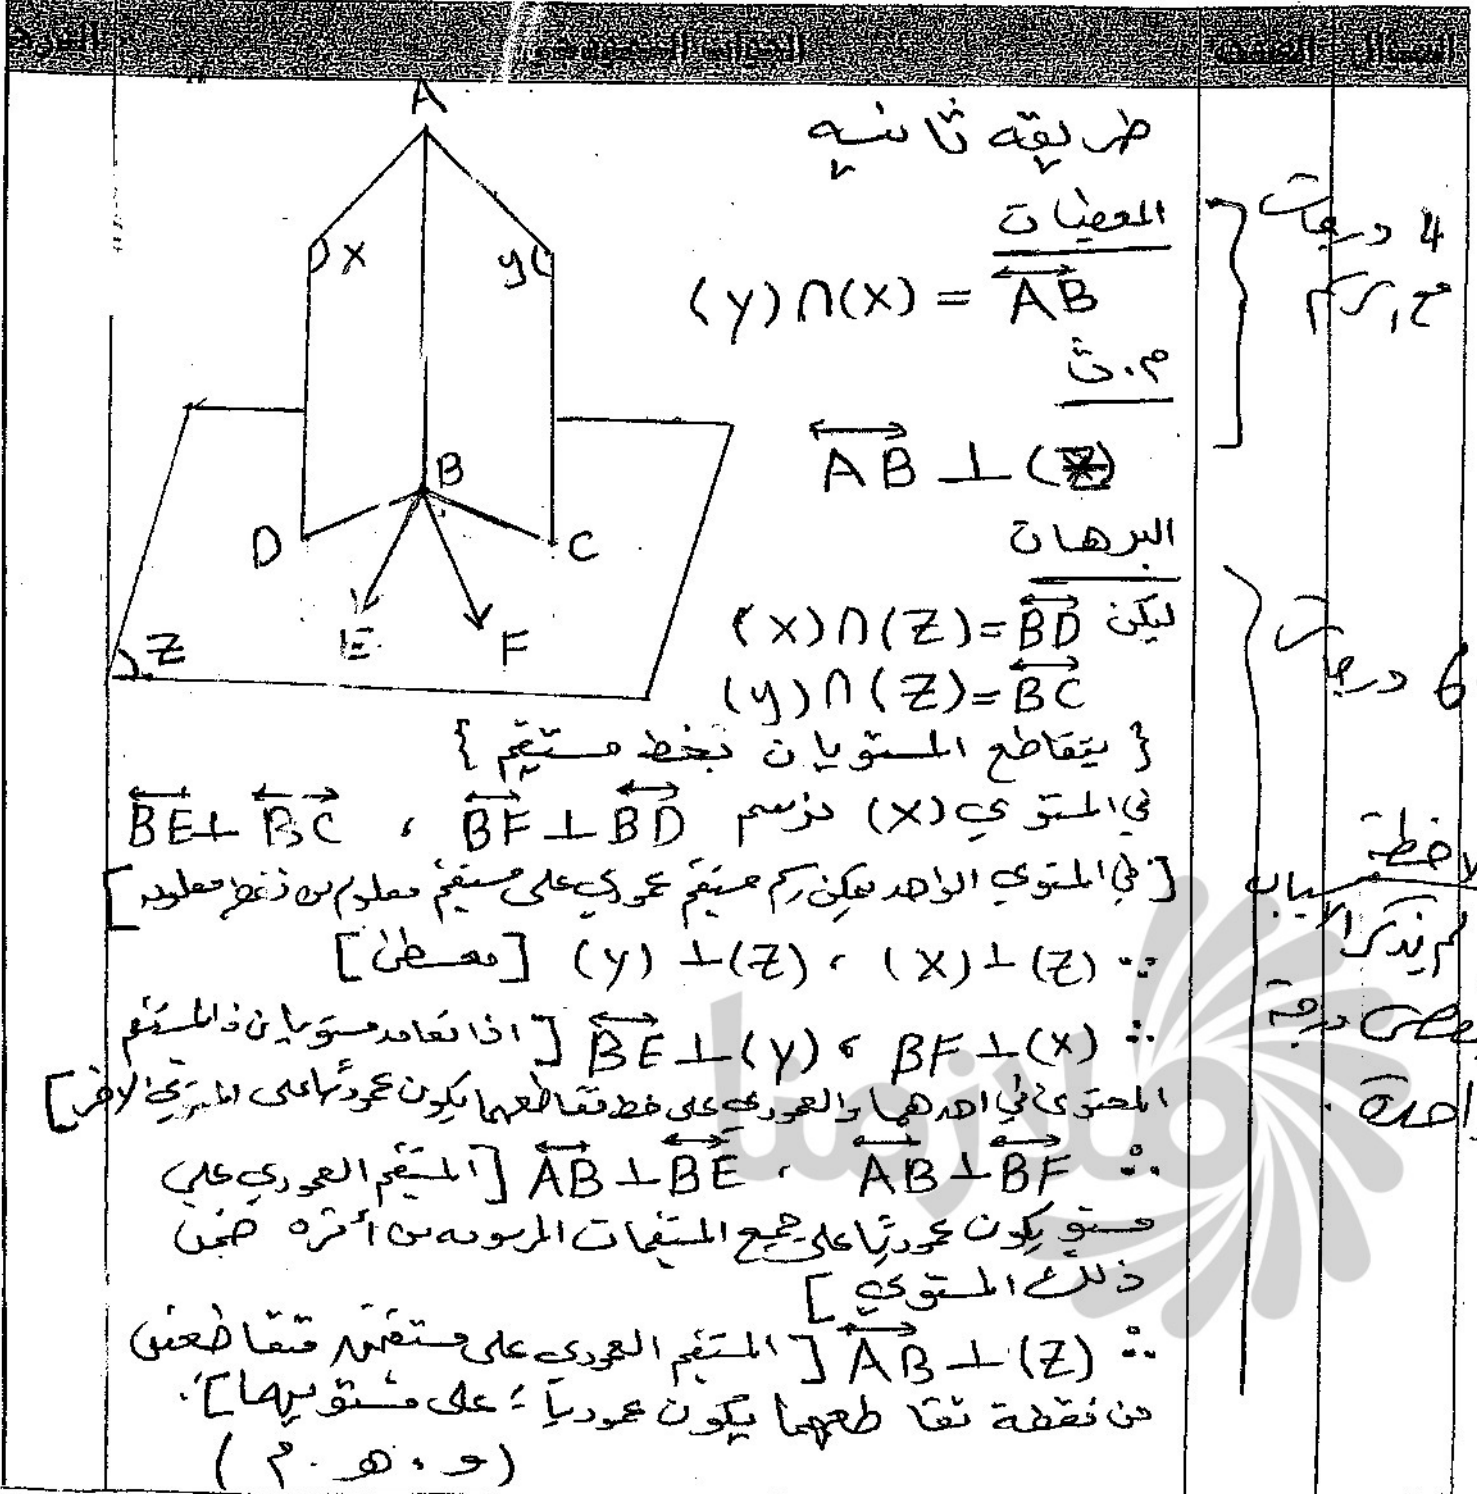 السؤال
الصفحة
طريقة ثانيه
المعطيات
(y)∩(x) = AB
م.ث
AB ⊥ (Z)
البرهان
ليكن (x)∩(Z)=BD
(y)∩(Z)=BC
{ يتقاطع المستويان بخط مستقيم }
في المستوي (x) نرسم BF⊥BD ، BE⊥BC
[ في المستوي الواحد يمكن رسم مستقيم عمودي على مستقيم معلوم من نقطة معلومة ]
∵ (x)⊥(Z) ، (y)⊥(Z) [معطى]
∴ BF⊥(x) ، BE⊥(y) [ اذا تعامد مستويان فالمستقيم
المحتوى في احدهما والعمودي على خط تقاطعهما يكون عموديا على المستوي الاخر ]
∴ AB⊥BF ، AB⊥BE [ المستقيم العمودي على
مستو يكون عمودياً على جميع المستقيمات المرسومه من أثره ضمن
ذلك المستوي ]
∴ AB⊥(Z) [ المستقيم العمودي على مستقيمين متقاطعين
من نقطة تقاطعهما يكون عمودياً على مستويهما ].
(و. هـ. م)
A
x
y
B
D
C
E
F
Z
4 درجات
6 درجات
لم يذكر الاسباب
درجة
ملازمنا